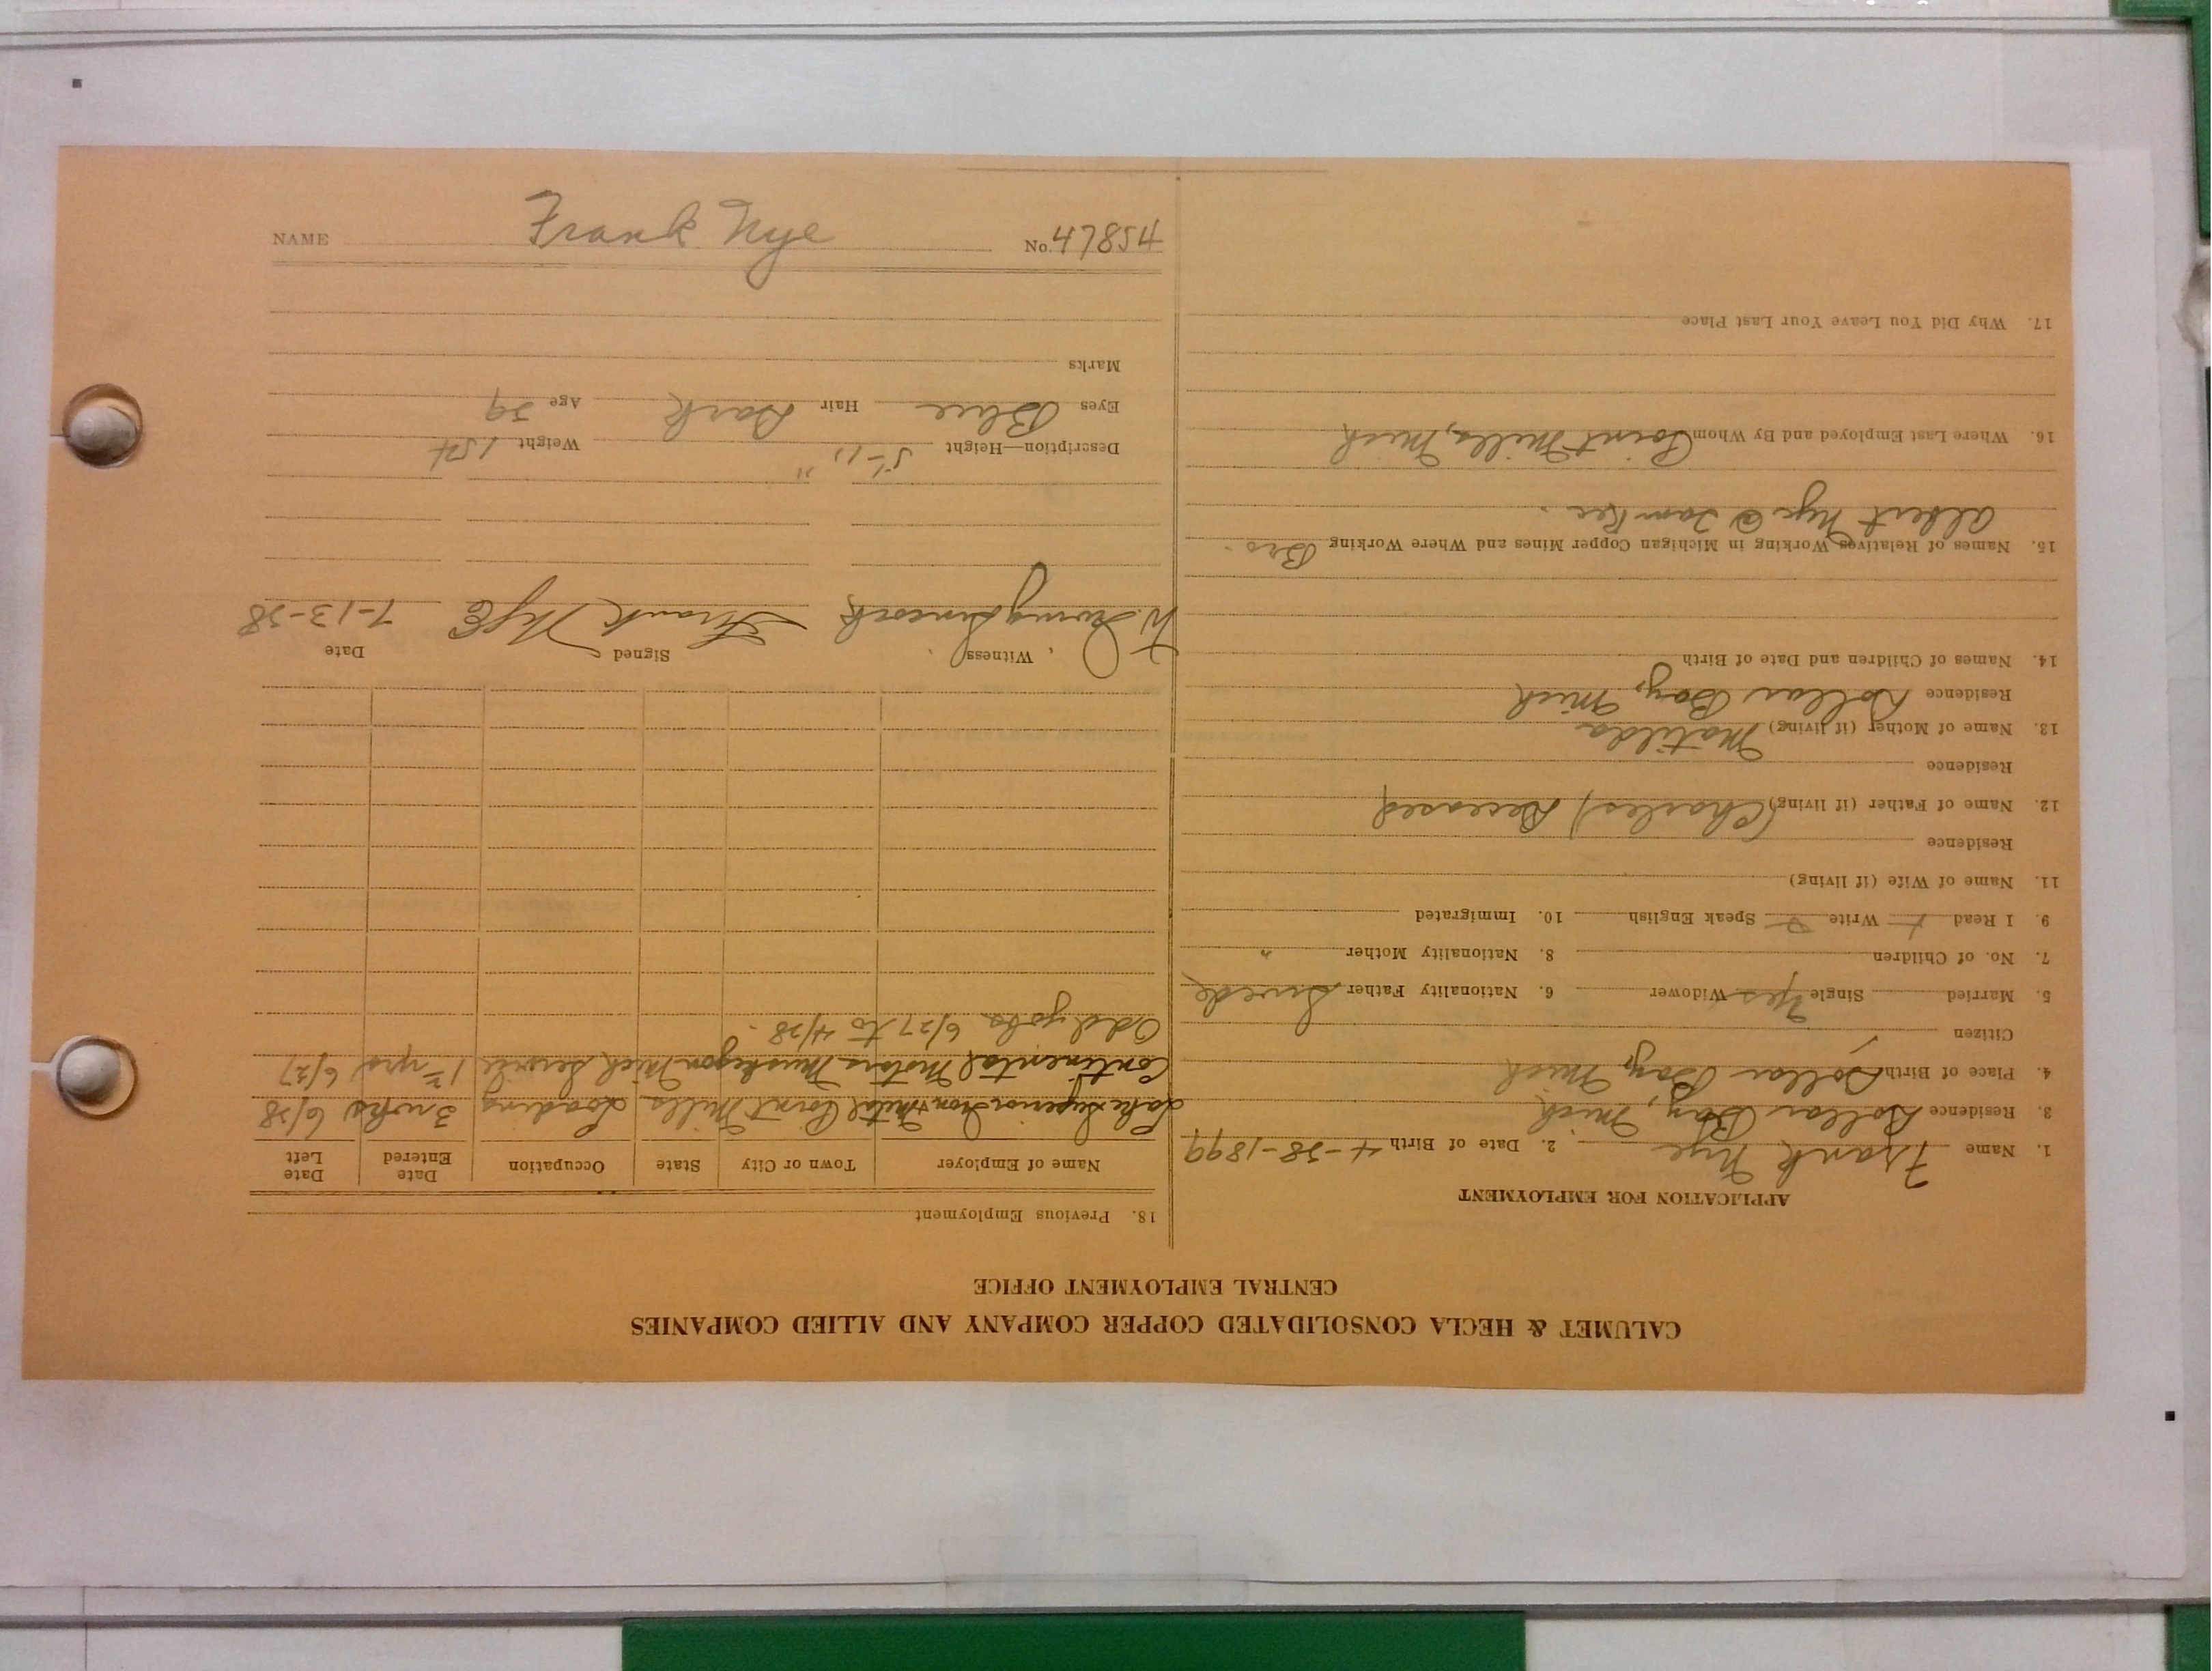 NAME Frank Nye No. 47854
CALUMET & HECLA CONSOLIDATED COPPER COMPANY AND ALLIED COMPANIES
CENTRAL EMPLOYMENT OFFICE
APPLICATION FOR EMPLOYMENT
1. Name Frank Nye 2. Date of Birth 4-28-1899
3. Residence Dollar Bay, Mich
4. Place of Birth Dollar Bay, Mich
Citizen
5. Married Single Yes Widower 6. Nationality Father Swede
7. No. of Children 8. Nationality Mother "
9. I Read Write Speak English 10. Immigrated
11. Name of Wife (if living)
Residence
12. Name of Father (if living) (Charles) Deceased
Residence
13. Name of Mother (if living) Matilda
Residence Dollar Bay, Mich
14. Names of Children and Date of Birth
15. Names of Relatives Working in Michigan Copper Mines and Where Working Bro.
Albert Nye @ Tam Rec.
16. Where Last Employed and By Whom Point Mills, Mich
17. Why Did You Leave Your Last Place
18. Previous Employment
Name of Employer Town or City State Occupation Date Entered Date Left
Lake Superior Iron & Metal Point Mills Loading 3 wks 6/28
Continental Motors Muskegon Mich Service yrs 6/27
Odd jobs 6/27 to 4/28.
Witness Signed Date
Frank Nye 7-13-28
Description—Height 5'-11" Weight 154
Eyes Blue Hair Dark Age 29
Marks